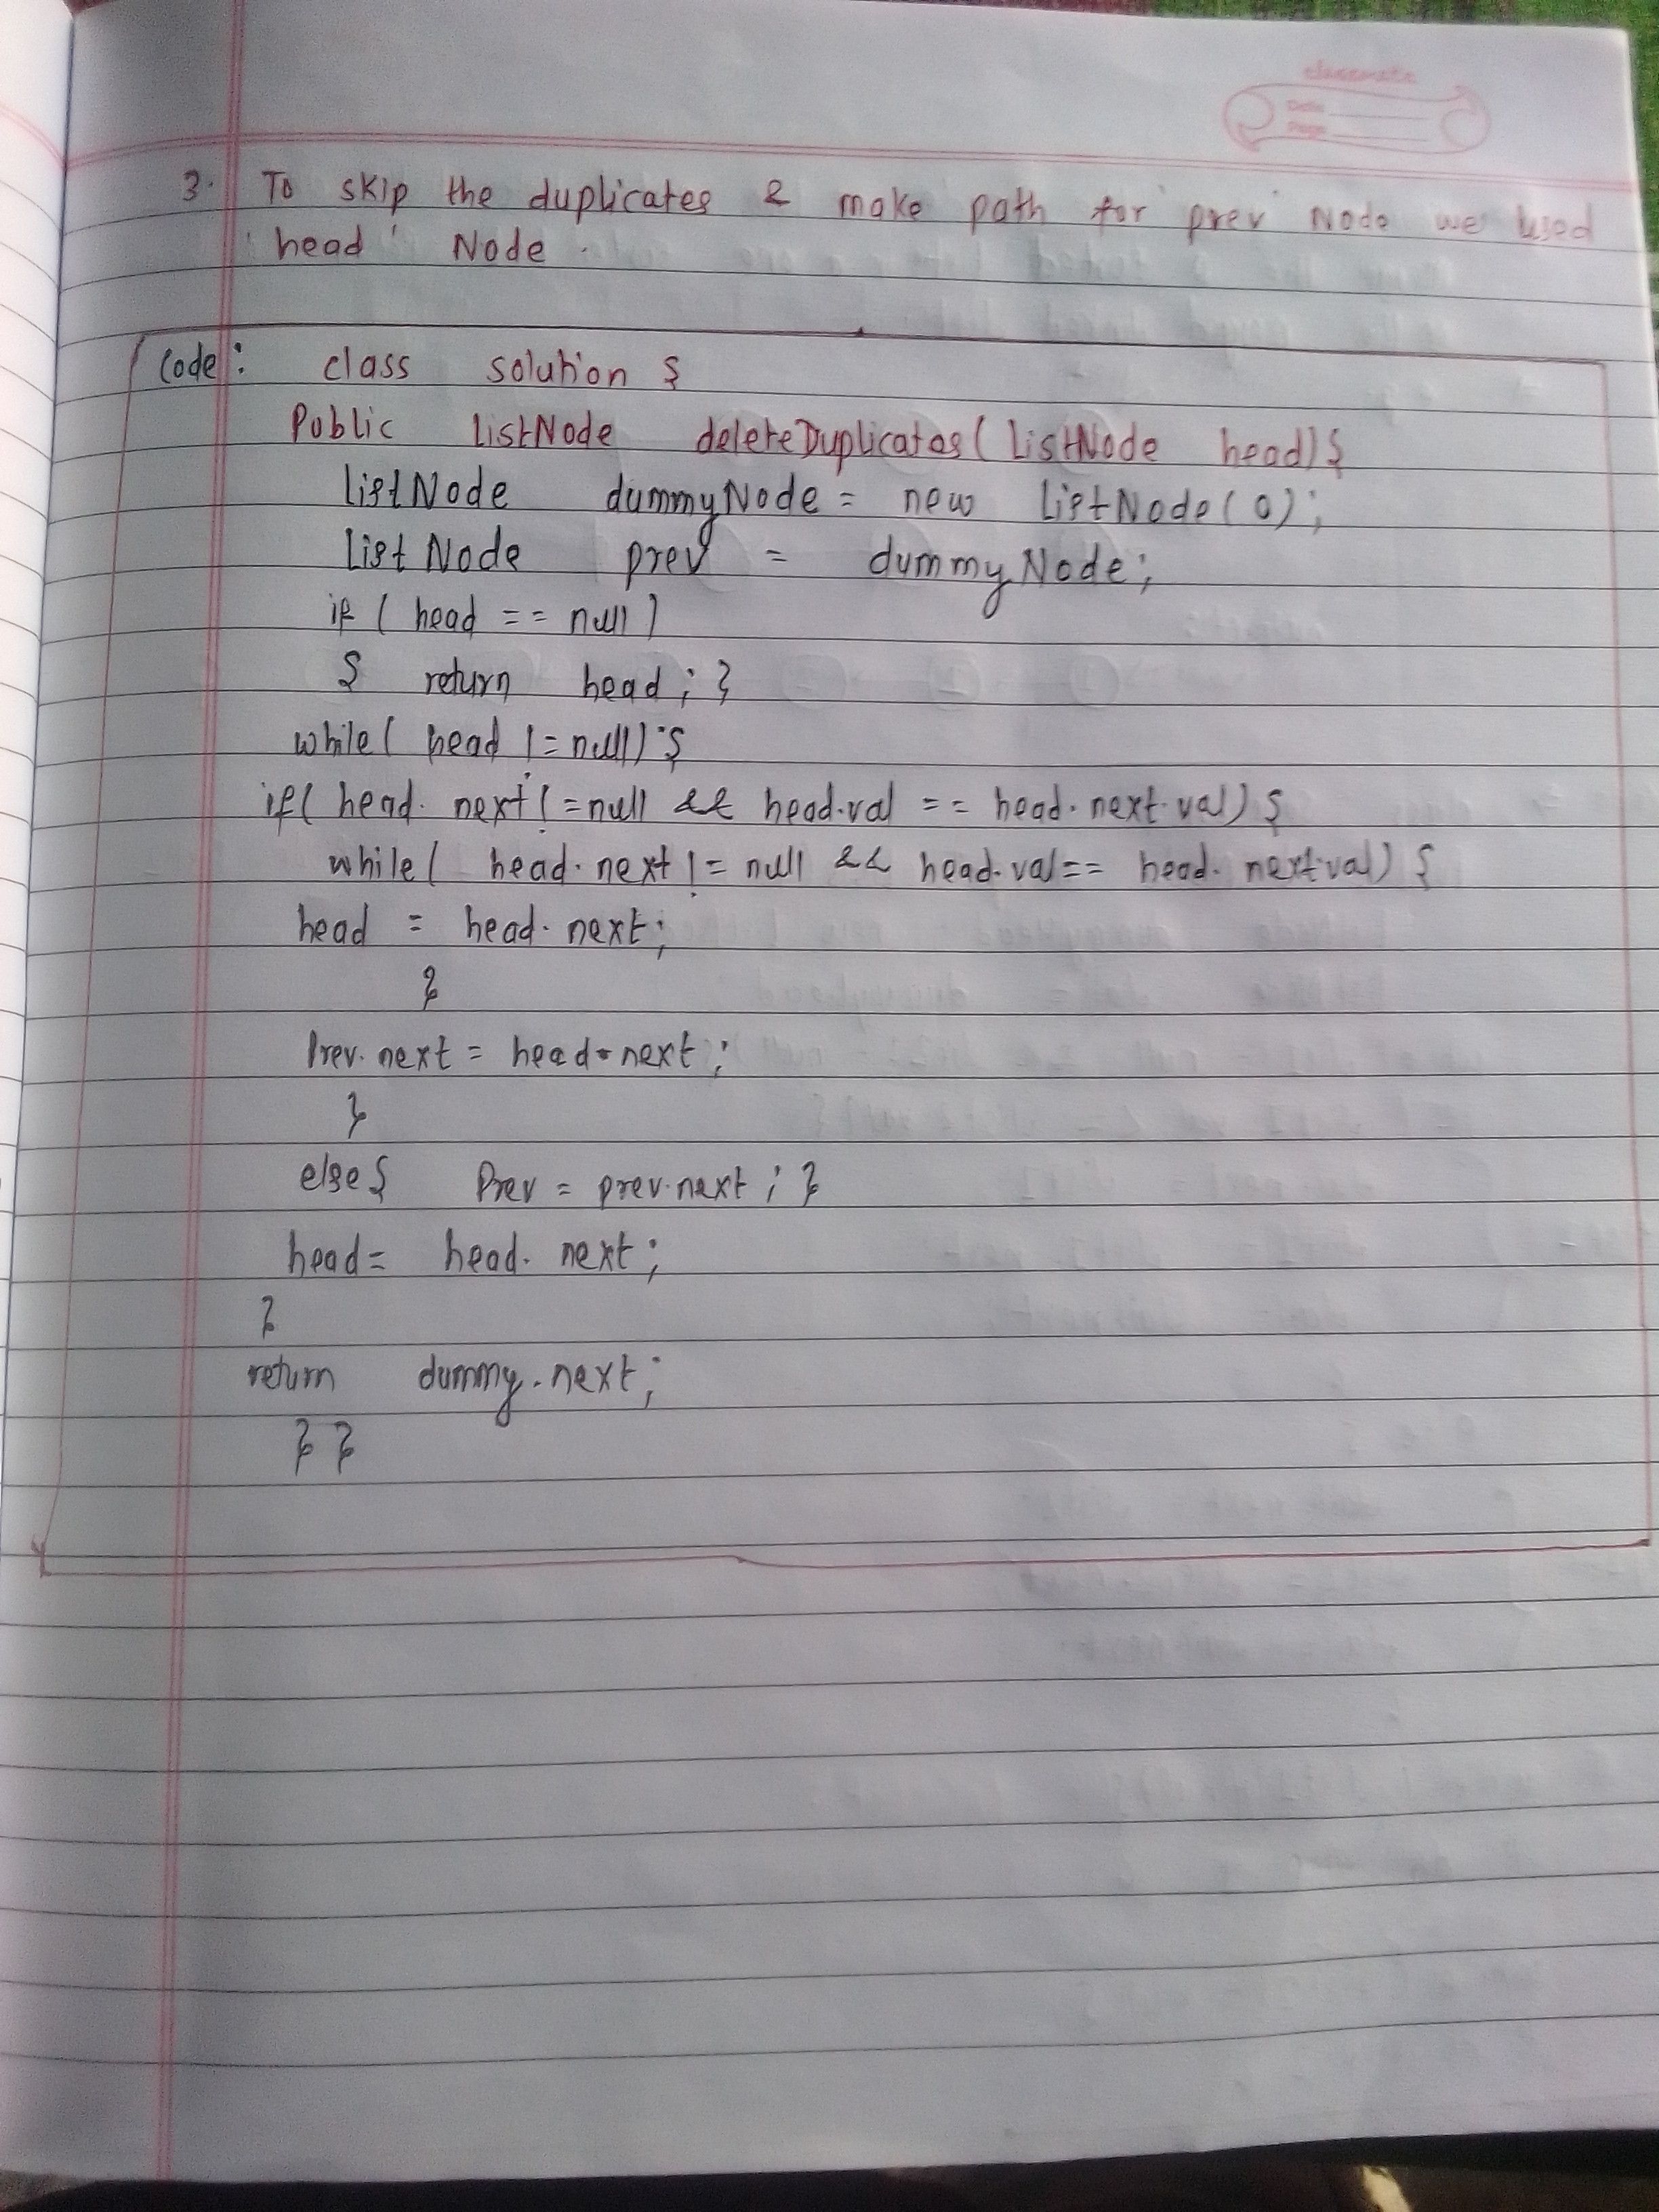 classmate
Date
Page
3. To skip the duplicates & make path for prev Node we used
'head' Node .
Code: class solution {
Public ListNode deleteDuplicates( ListNode head){
ListNode dummyNode = new ListNode(0);
List Node prev = dummyNode;
if ( head == null )
{ return head ; }
while( head != null) {
if( head. next != null && head.val == head.next.val) {
while( head.next != null && head.val == head.next.val) {
head = head.next;
}
Prev.next = head.next ;
}
else { Prev = prev.next ; }
head = head. next ;
}
return dummy.next;
} }